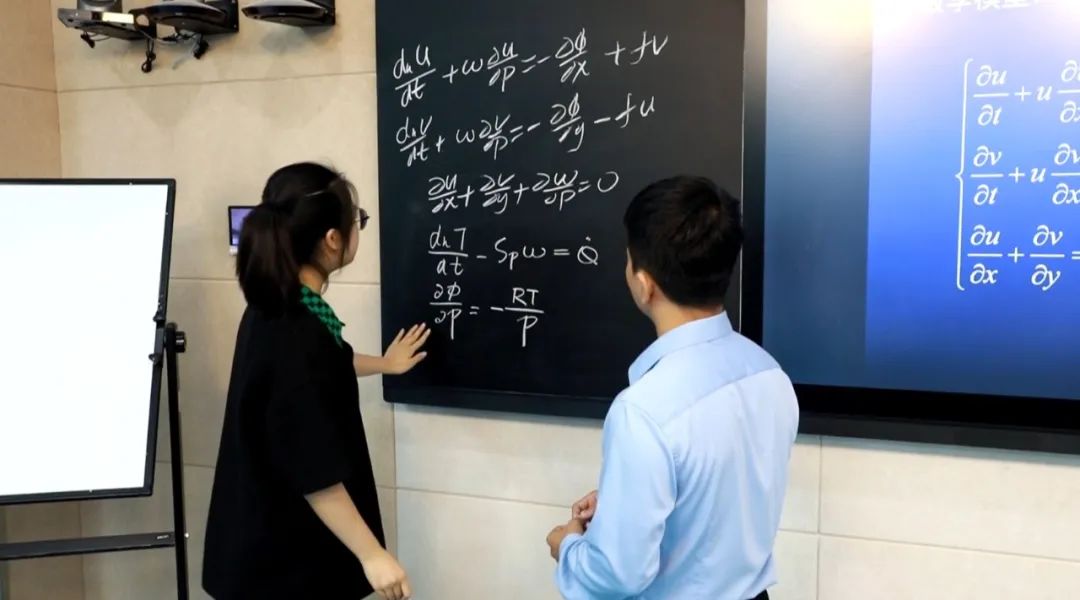 d_h u/dt + ω ∂u/∂p = - ∂ϕ/∂x + fv
d_h v/dt + ω ∂v/∂p = - ∂ϕ/∂y - fu
∂u/∂x + ∂v/∂y + ∂ω/∂p = 0
d_h T/dt - S_p ω = Q̇
∂ϕ/∂p = - RT/p
∂u/∂t + u
∂v/∂t + u
∂u/∂x + ∂v/∂y =